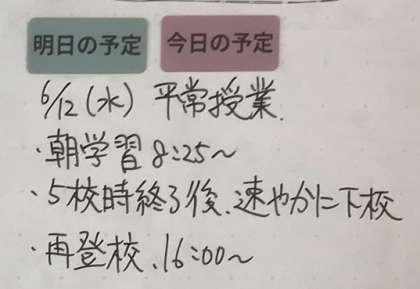 明日の予定 今日の予定
6/12(水) 平常授業.
・朝学習 8:25～
・5校時終了後、速やかに下校
・再登校、16:00～